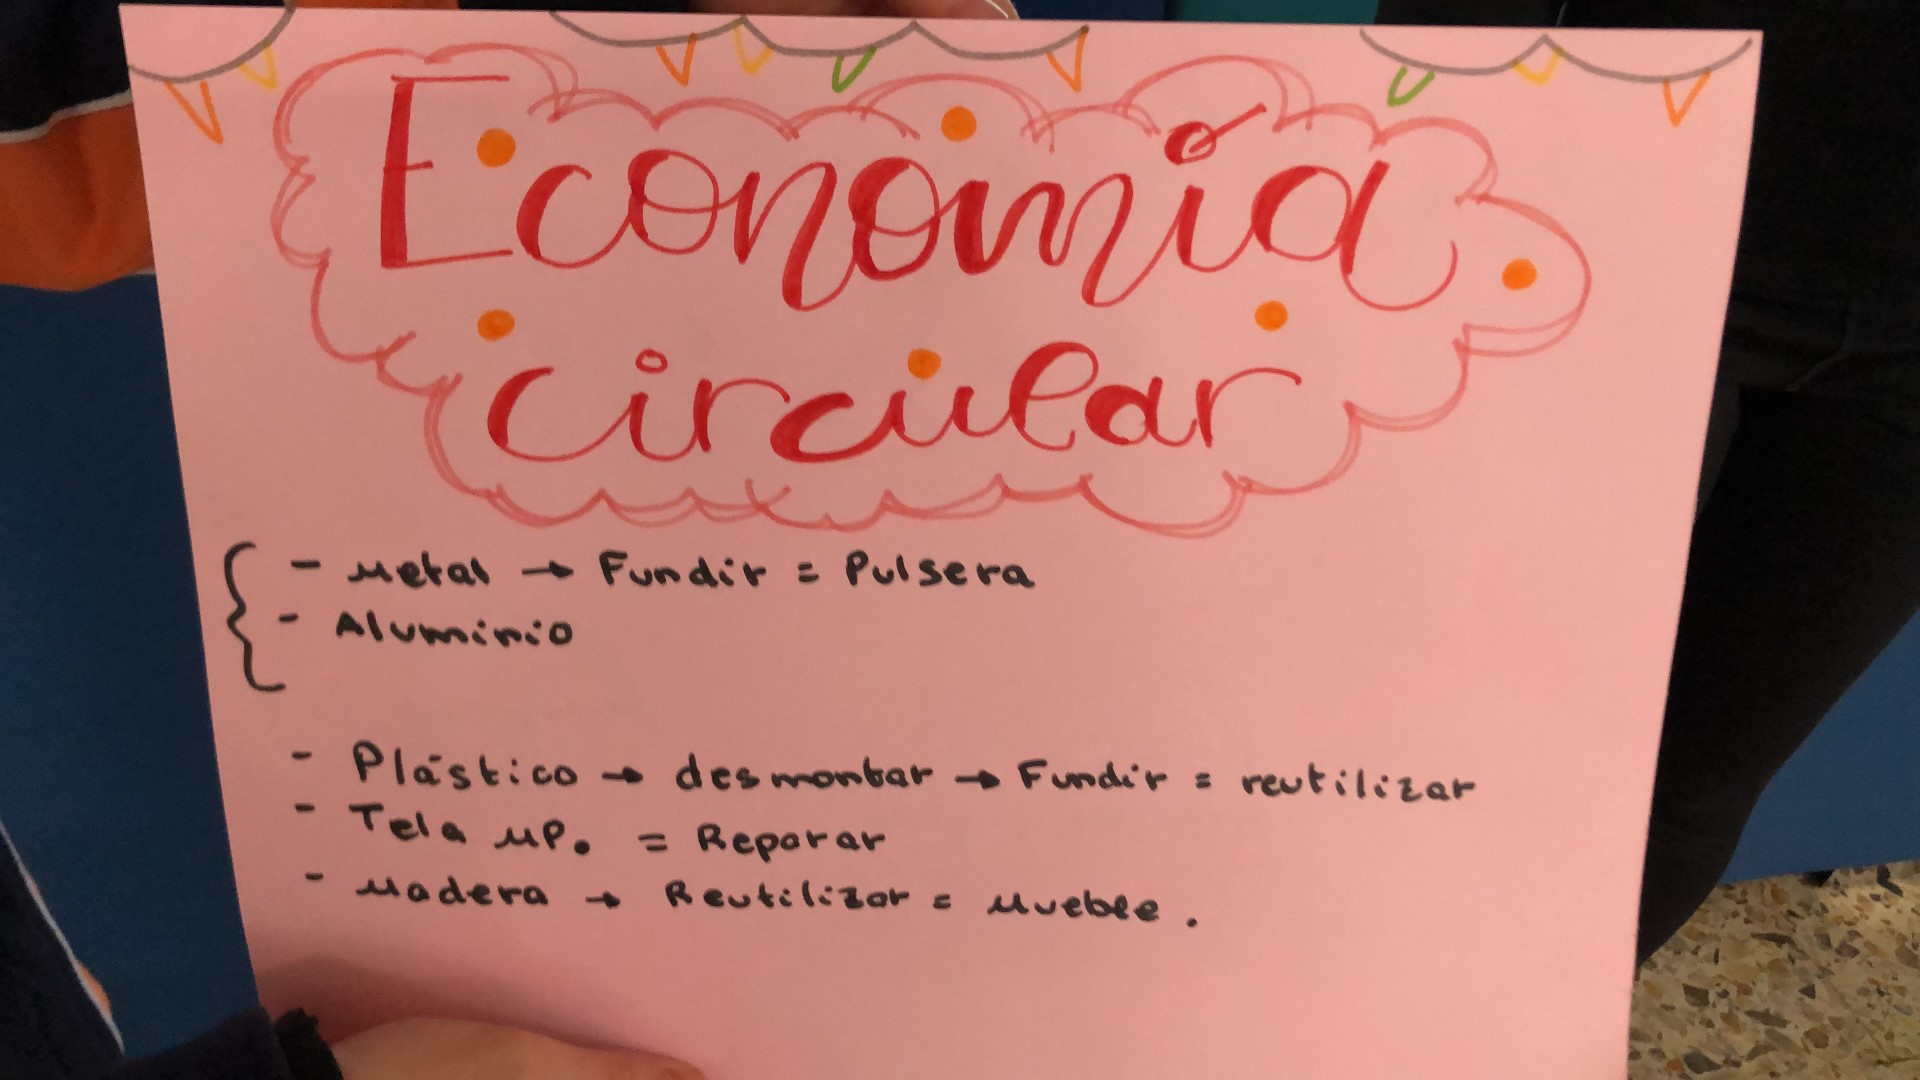 Economía
circular
- Metal → Fundir = Pulsera
- Aluminio
- Plástico → desmontar → Fundir = reutilizar
- Tela MP. = Reparar
- Madera → Reutilizar = Mueble.